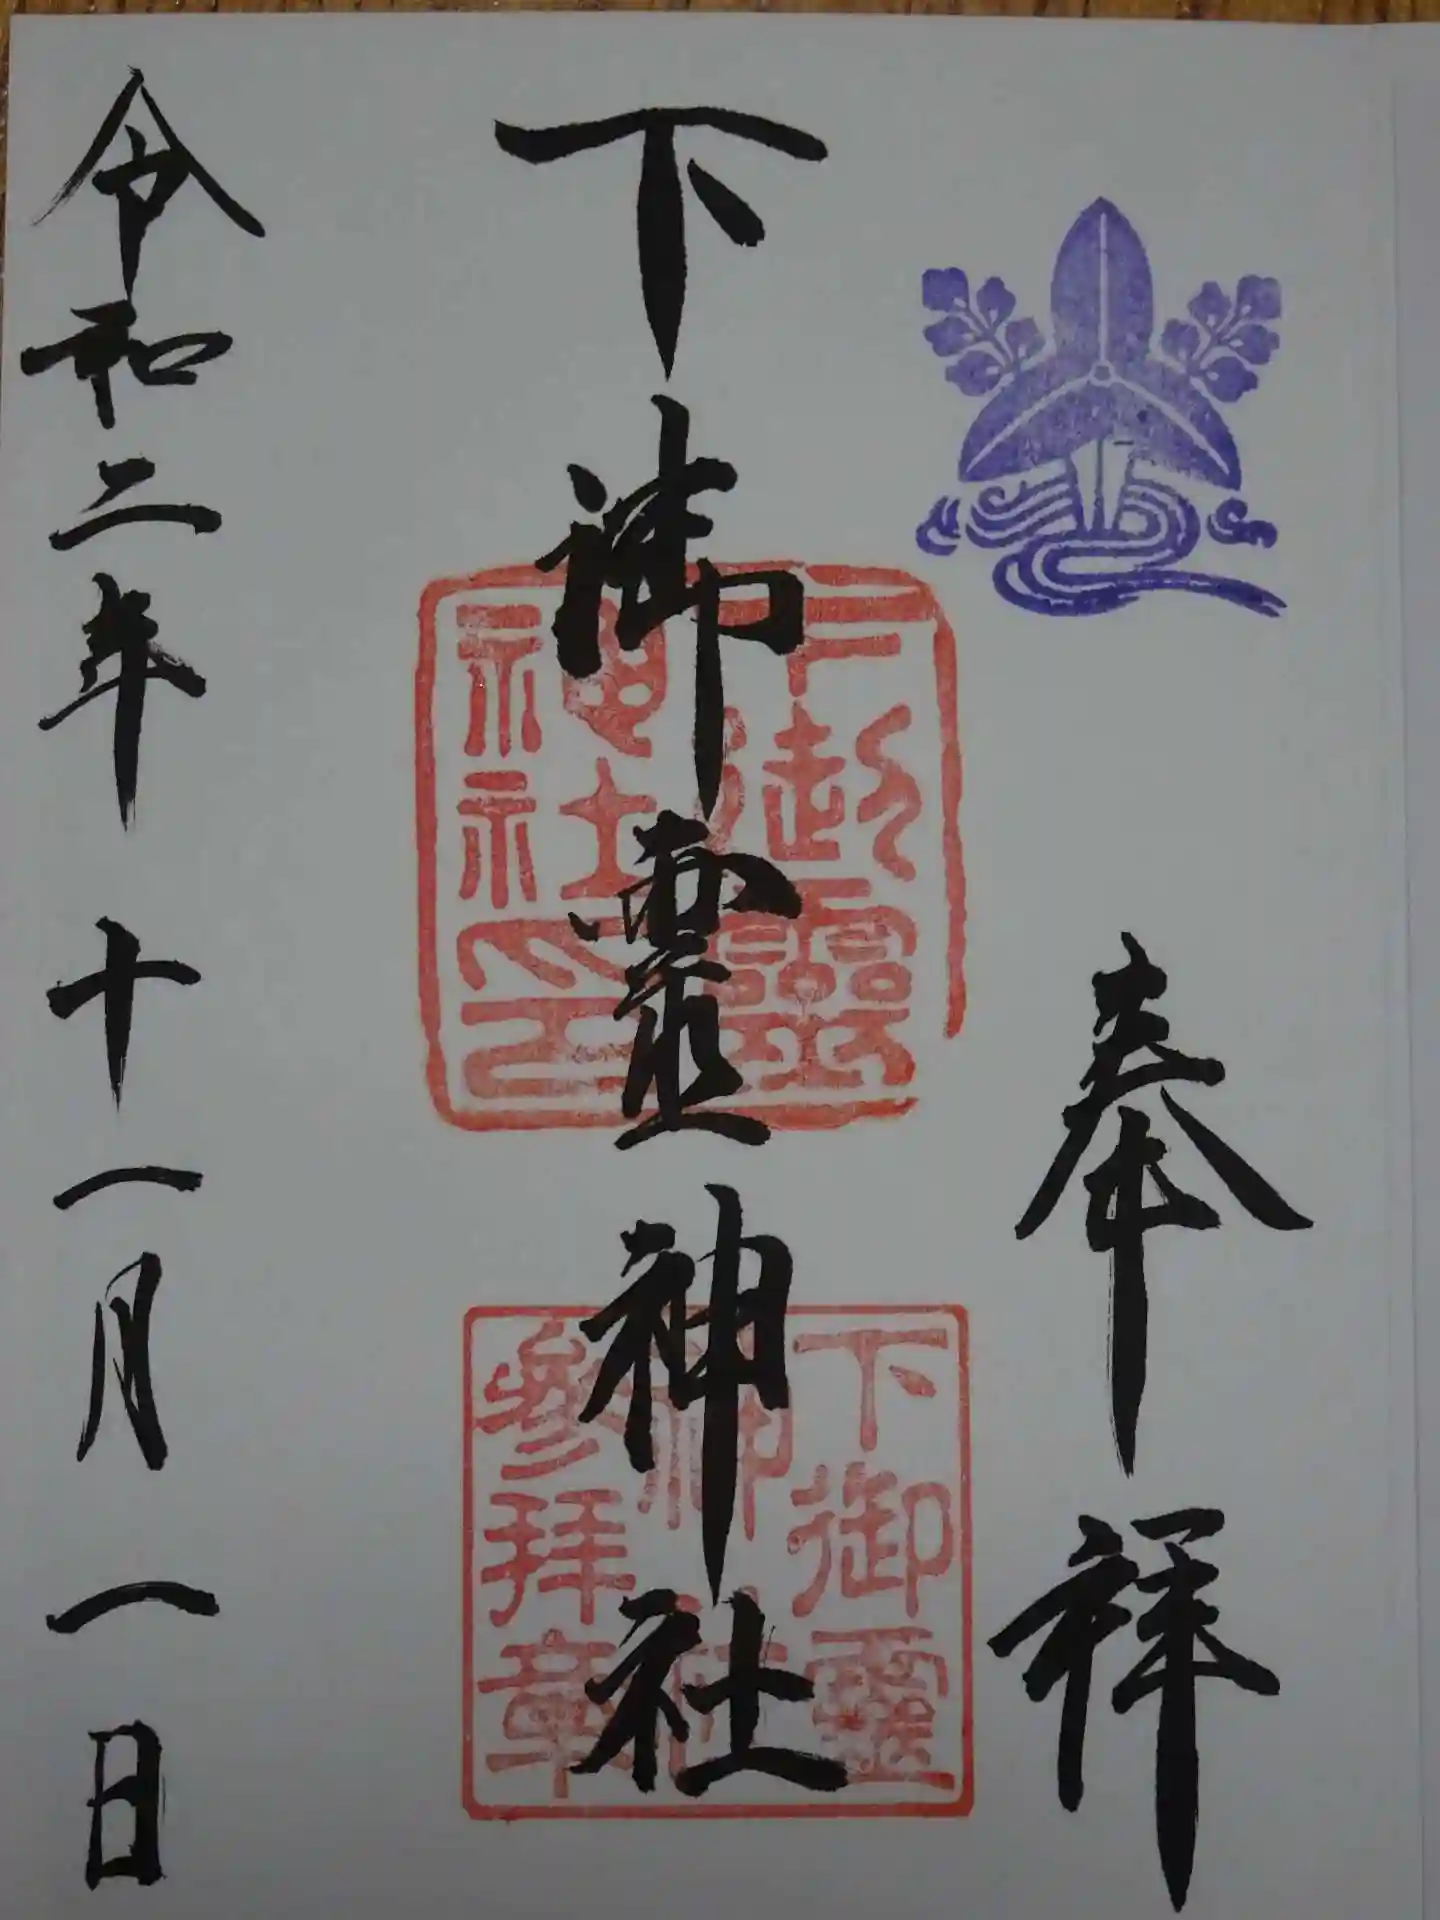 奉拝
下御霊神社
令和二年 十一月一日
下御靈
神社
印
下御靈
神社
參拜章